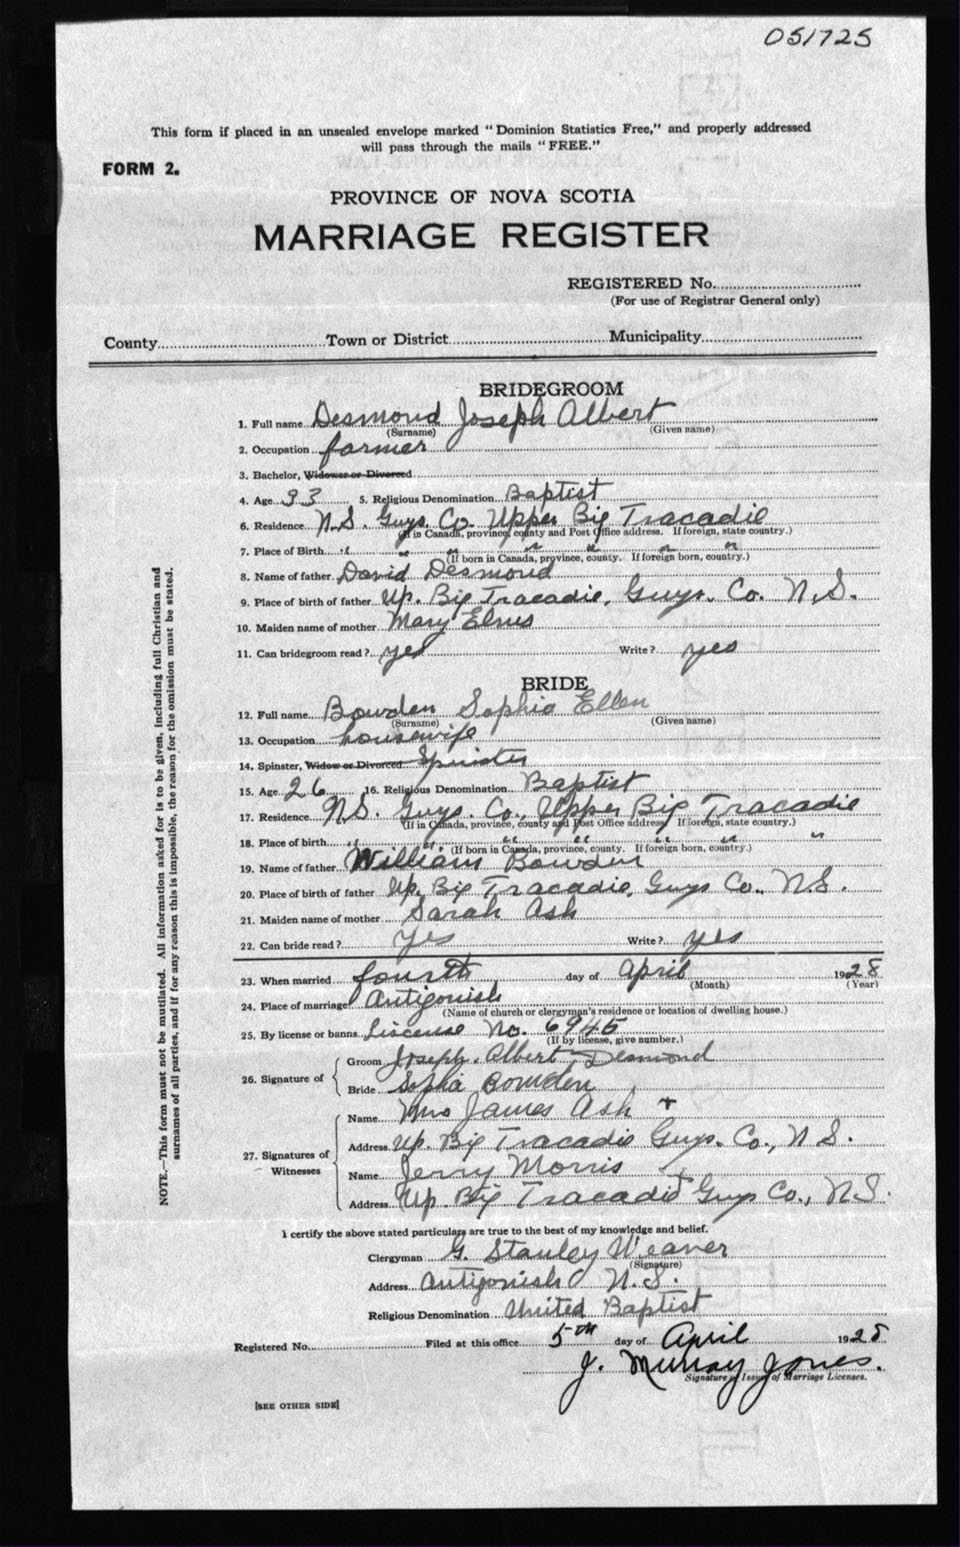 051725
This form if placed in an unsealed envelope marked "Dominion Statistics Free," and properly addressed
will pass through the mails "FREE."
FORM 2.
PROVINCE OF NOVA SCOTIA
MARRIAGE REGISTER
REGISTERED No.
(For use of Registrar General only)
County Town or District Municipality
BRIDEGROOM
1. Full name Desmond Joseph Albert
(Surname) (Given name)
2. Occupation farmer
3. Bachelor, Widower or Divorced
4. Age 33 5. Religious Denomination Baptist
6. Residence N.S. Guys. Co. Upper Big Tracadie
(If in Canada, province, county and Post Office address. If foreign, state country.)
7. Place of Birth " " " " " " "
(If born in Canada, province, county. If foreign born, country.)
8. Name of father David Desmond
9. Place of birth of father Up. Big Tracadie, Guys. Co. N.S.
10. Maiden name of mother Mary
11. Can bridegroom read? yes Write? yes
BRIDE
12. Full name Bowden Sophia Ellen
(Surname) (Given name)
13. Occupation housewife
14. Spinster, Widow or Divorced Spinster
15. Age 26 16. Religious Denomination Baptist
17. Residence N.S. Guys. Co., Upper Big Tracadie
(If in Canada, province, county and Post Office address. If foreign, state country.)
18. Place of birth " " " " " " "
(If born in Canada, province, county. If foreign born, country.)
19. Name of father William Bowden
20. Place of birth of father Up. Big Tracadie, Guys Co., N.S.
21. Maiden name of mother Sarah Ash
22. Can bride read? yes Write? yes
23. When married fourth day of April 1928
(Month) (Year)
24. Place of marriage Antigonish
(Name of church or clergyman's residence or location of dwelling house.)
25. By license or banns Liscense No. 6945
(If by license, give number.)
26. Signature of Groom Joseph. Albert Desmond
Bride Sophia Bowden
27. Signatures of Witnesses Name Mrs James Ash +
Address Up. Big Tracadie Guys. Co., N.S.
Name Jerry Morris
Address Up. Big Tracadie Guys Co., N.S.
I certify the above stated particulars are true to the best of my knowledge and belief.
Clergyman G. Stanley Weaver
(Signature)
Address Antigonish N.S.
Religious Denomination United Baptist
Registered No. Filed at this office 5th day of April 1928
J. Murray Jones.
Signature of Issuer of Marriage Licenses.
[SEE OTHER SIDE]
NOTE.—This form must not be mutilated. All information asked for is to be given, including full Christian and
surnames of all parties, and if for any reason this is impossible, the reason for the omission must be stated.